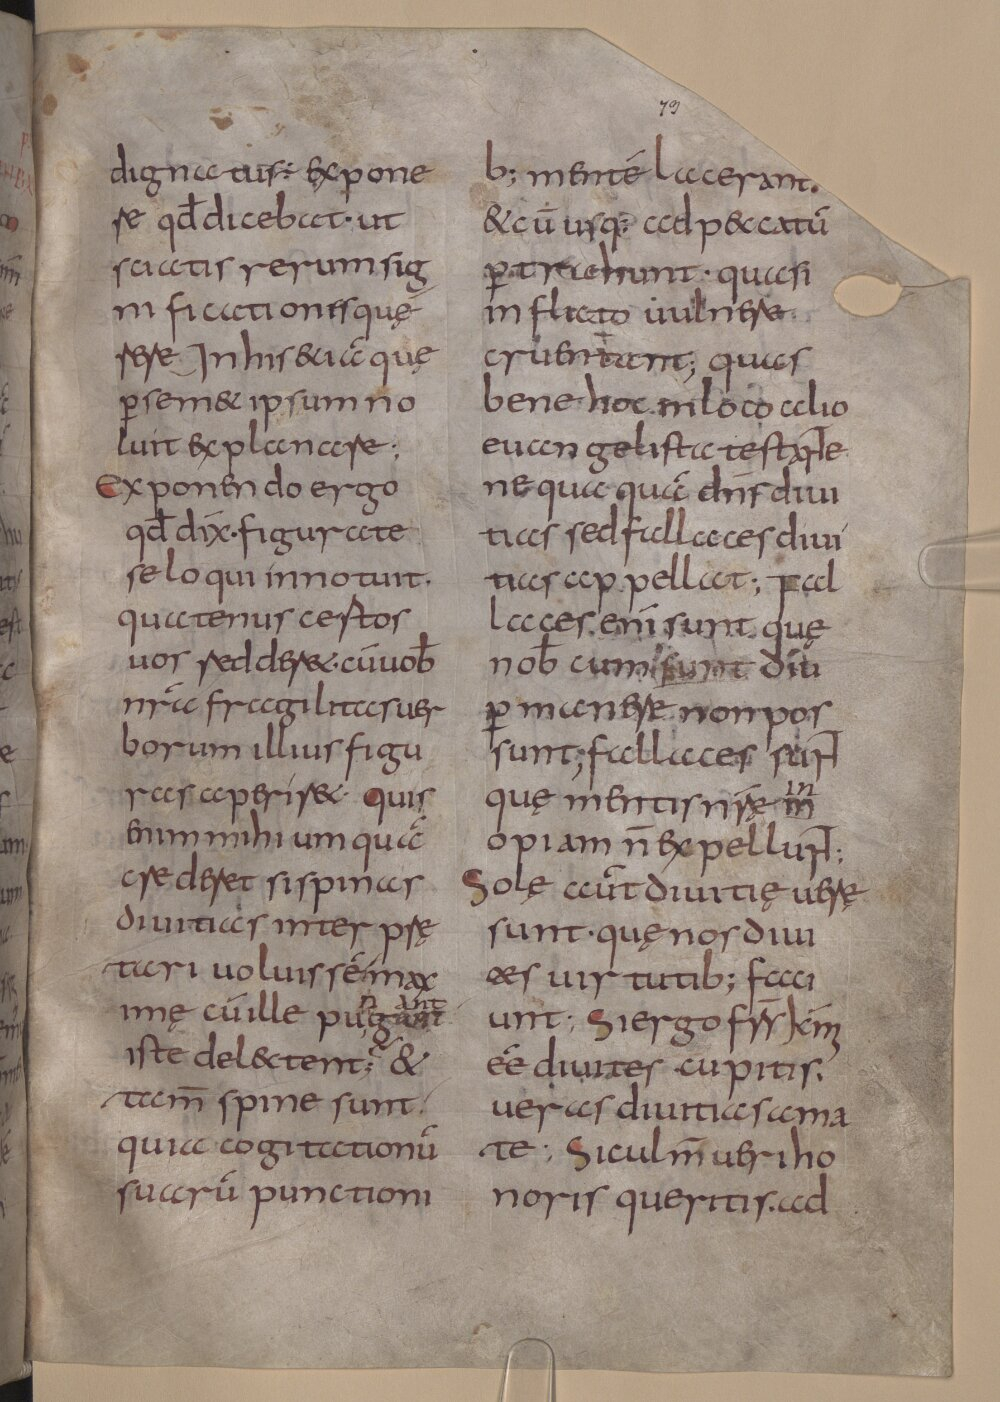 79
dignatus; expone
re qd̄ dicebat· ut
sciatis rerum sig
nificationes quę
rere In his & iā quę
ꝑ sem& ipsum no
luit explanare;
Exponendo ergo
qd̄ dix̄· figurate
se loqui innotuit·
quatenus certos
uos redder&· cū uob̄
nr̄a fragilitas uer
borum illius figu
ras aperir&· Quis
enim mihi umquā
crederet si spinas
diuitias inter p̄rę
tari uoluissē max
imę cū ille pungant
iste delectent; &
tam̄ spine sunt·
quia cogitationū
suarū punctioni
b; mentē lacerant·
& cū usq; ad peccatū
ꝑtrahunt· quasi
inflicto uulnere
cruentant; quas
bene hoc in loco alio
euangelista testante
ne quaquā dn̄s diui
tias sed fallaces diui
tias appellat; Fal
laces enī sunt quę
nob̄ cum sunt diū
ꝑmanere non pos
sunt; fallaces sunt
quę mentis nr̄ę in
opiam n̄ expellunt;
Solę aūt diuitię uerę
sunt· quę nos diui
tes uirtutib; faci
unt; Si ergo frr̄ kīm
eē diuites cupitis·
ueras diuitias ama
te; Si culm̄ ueri ho
noris queritis· ad